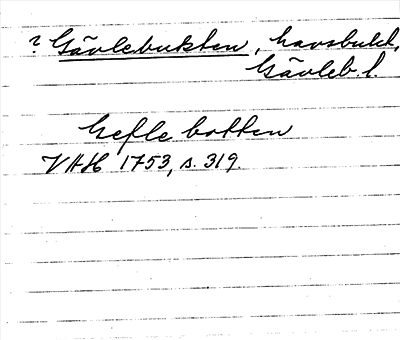 ? Gävlebukten, havsbukt,
Gävleb. l.
Gefle botten
VAH 1753, s. 319.